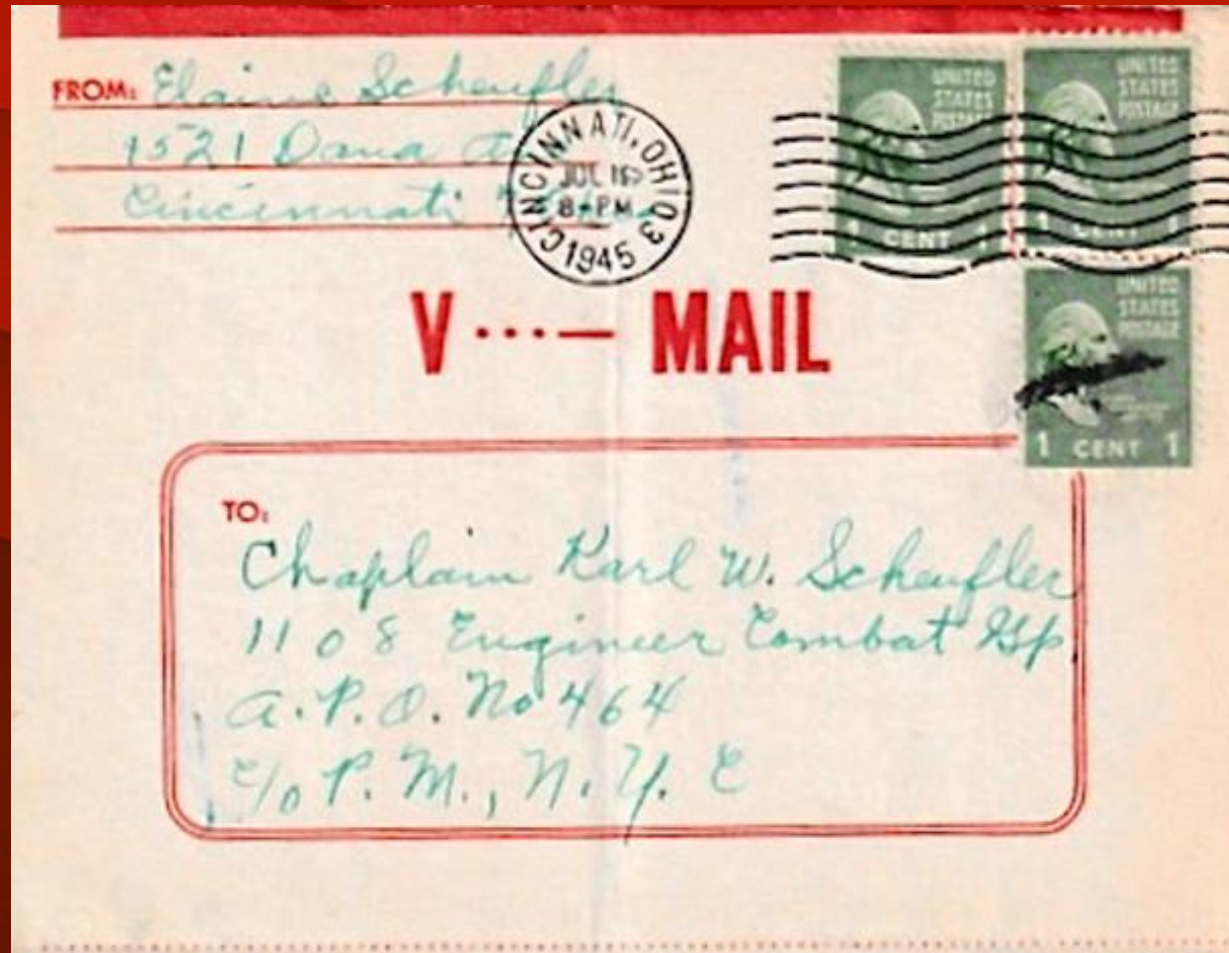 FROM: Elaine Scheufler
1521 Dana
Cincinnati
CINCINNATI, OHIO 3
JUL 16
8-PM
1945
UNITED
STATES
POSTAGE
1 CENT 1
UNITED
STATES
POSTAGE
1 CENT 1
V ···— MAIL
UNITED
STATES
POSTAGE
1 CENT 1
TO:
Chaplain Karl W. Scheufler
1108 Engineer Combat Gp
A.P.O. No 464
c/o P.M., N.Y. C